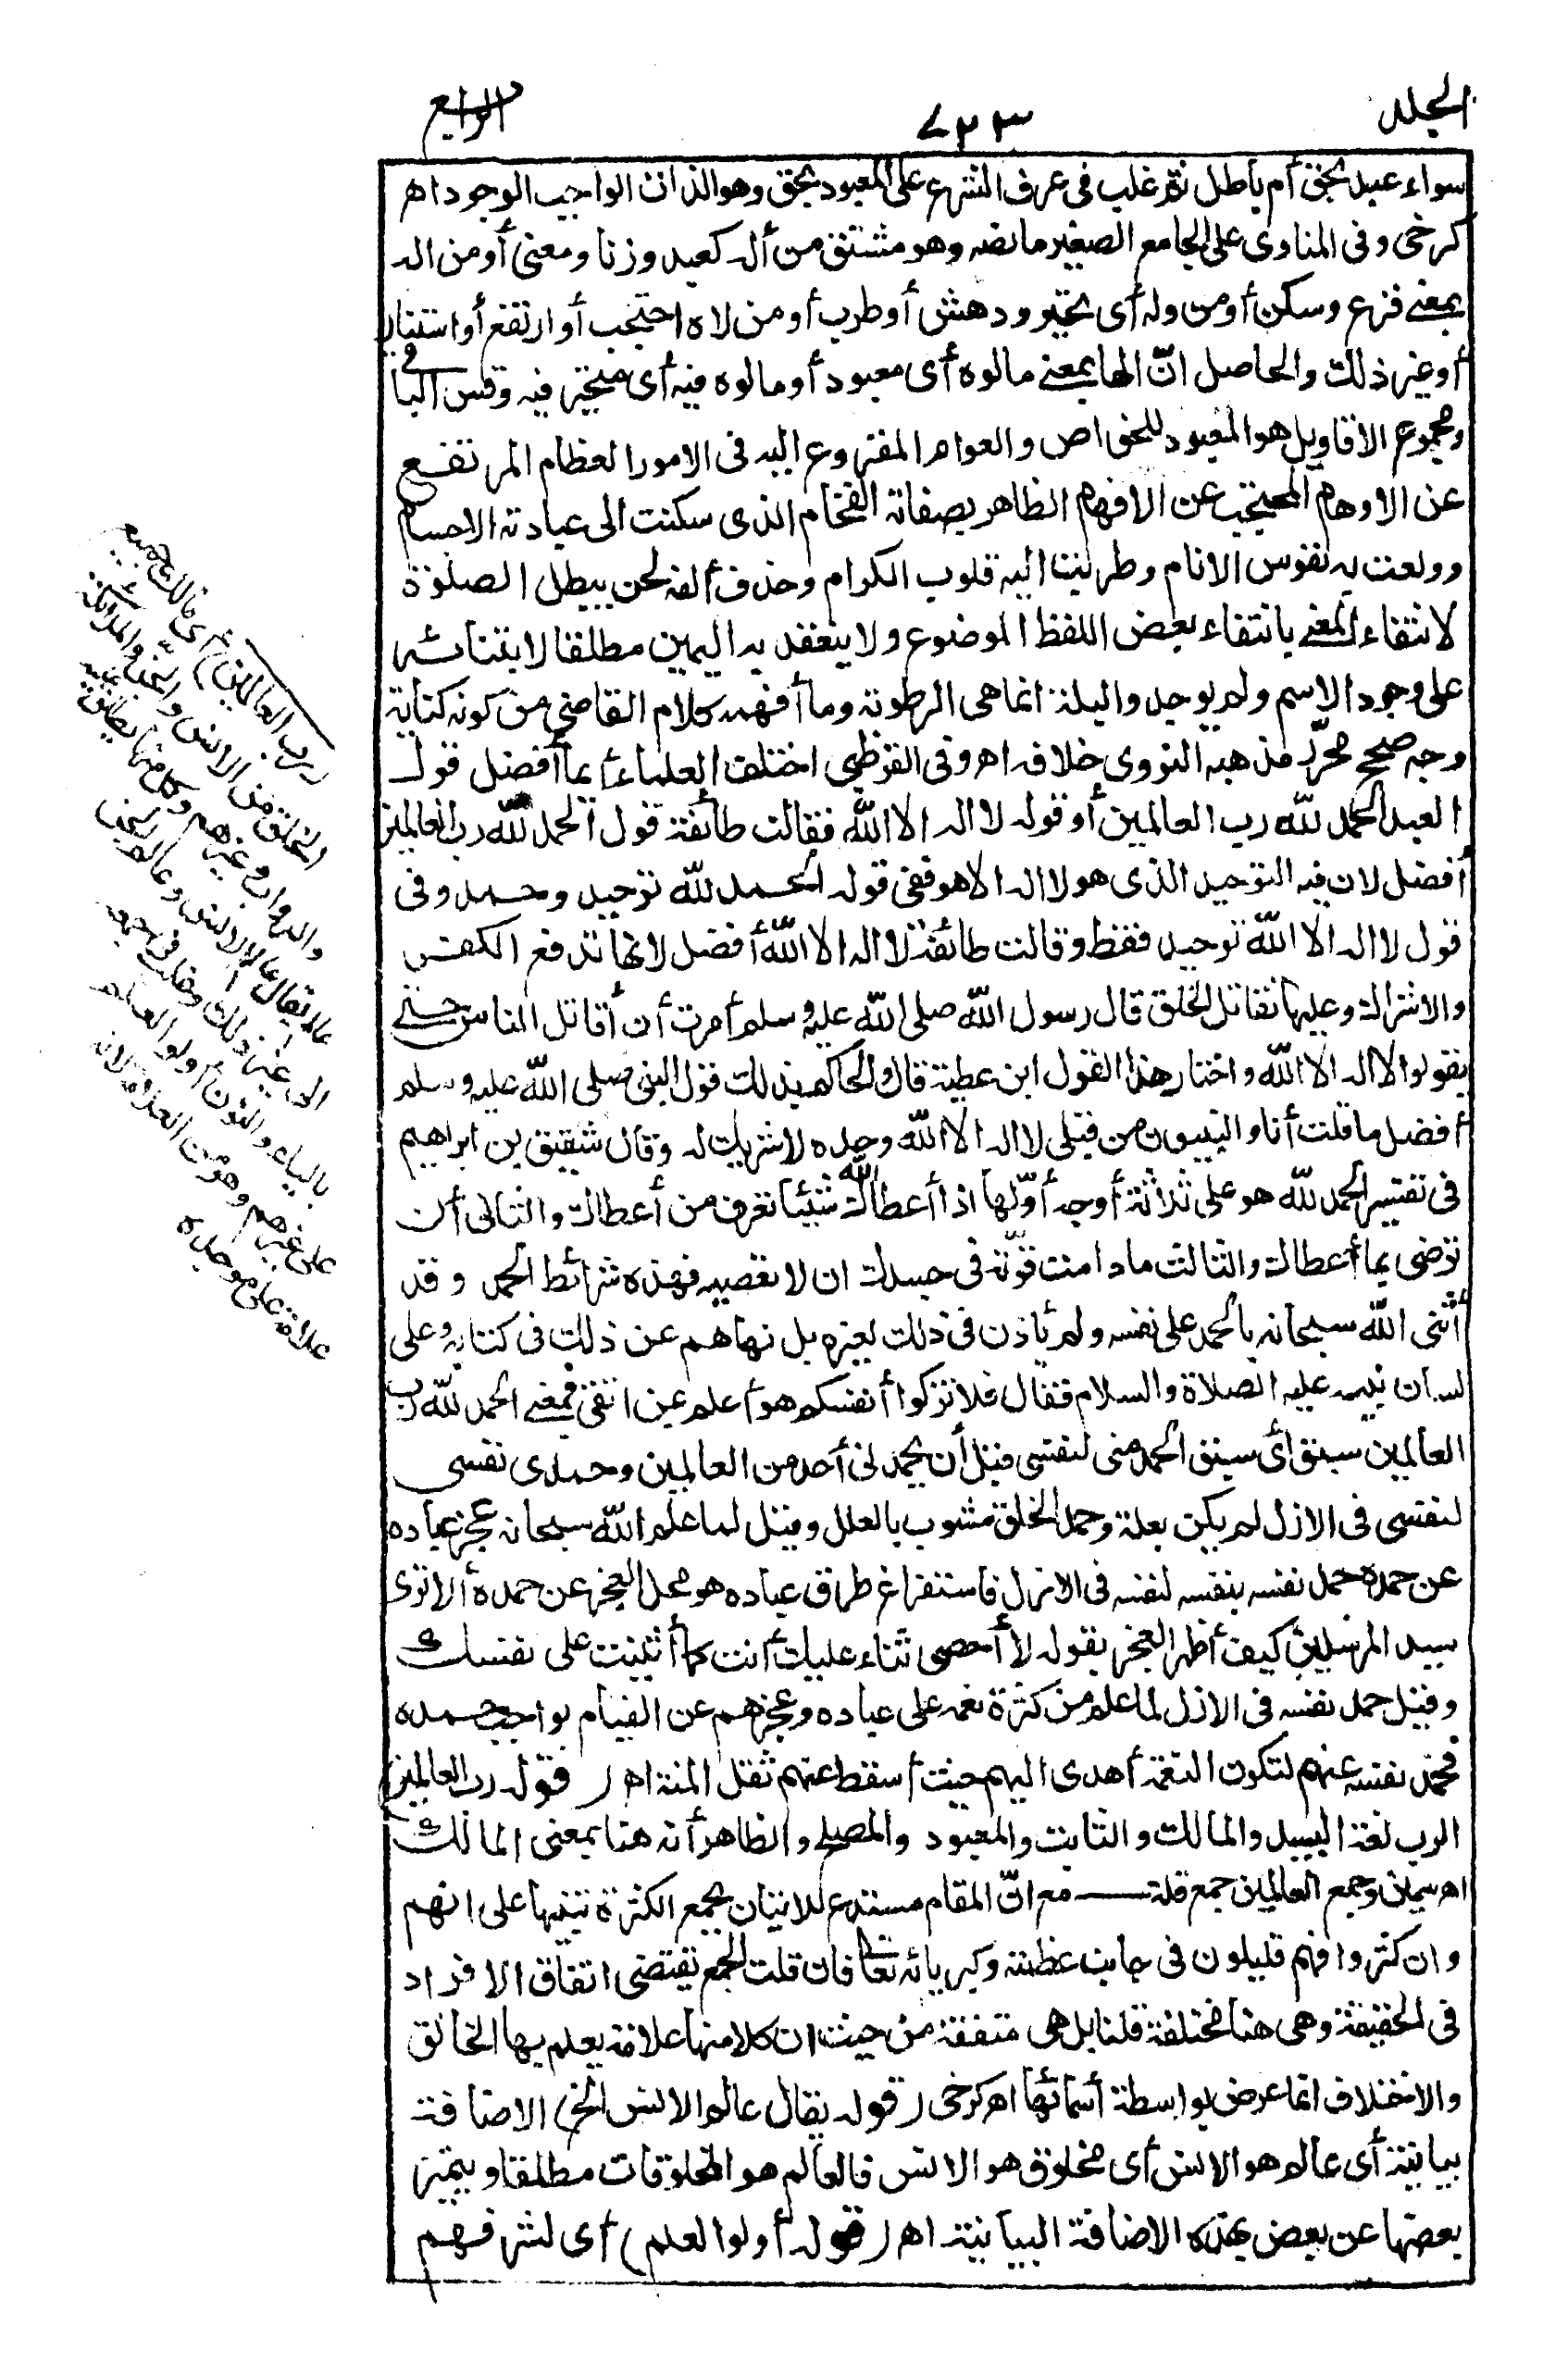 الجلد
٧٣٣
الرابع
سواء عبد بحق أم باطل ثم غلب فى عرف الشرع على المعبود بحق وهو الذات الواجب الوجود اهـ
كرخى وفى المناوى على الجامع الصغير ما نصه وهو مشتق من أله كعبد وزنا ومعنى أو من اله
بمعنى فزع وسكن أو من وله أى تحير ودهش أو طرب أو من لاه احتجب أو ارتفع أو استنار
أو غير ذلك والحاصل انّ الها بمعنى مالوه أى معبود أو مالوه فيه أى متحير فيه وقس الباقى
ومجموع الاقاويل هو المعبود للخواص والعوام المفزوع اليه فى الامور العظام المرتفع
عن الاوهام المحتجب عن الافهام الظاهر بصفاته الفخام الذى سكنت الى عبادته الاجسام
وولعت به نفوس الانام وطربت اليه قلوب الكرام وحذف ألفه لحن يبطل الصلوة
لانتفاء المعنى بانتفاء بعض اللفظ الموضوع ولا ينعقد به اليمين مطلقا لابتنائه
على وجود الاسم ولم يوجد والبلة انما هى الرطوبة وما أفهمه كلام القاضي من كونه كناية
وجه صحيح محرّر مذهبه النووى خلافه اهـ وفى القرطبى اختلف العلماء أيما أفضل قول
العبد الحمد لله رب العالمين أو قوله لا اله الا الله فقالت طائفة قول الحمد لله رب العالمين
أفضل لان فيه التوحيد الذى هو لا اله الا هو ففى قوله الحمد لله توحيد وحمد وفى
قول لا اله الا الله توحيد فقط وقالت طائفة لا اله الا الله أفضل لانها تدفع الكفر
والاشراك وعليها تقاتل الخلق قال رسول الله صلى الله عليه وسلم أمرت أن أقاتل الناس حتى
يقولوا لا اله الا الله واختار هذا القول ابن عطية قال والحاكم بذلك قول النبى صلى الله عليه وسلم
أفضل ما قلت أنا والنبيون من قبلى لا اله الا الله وحده لا شريك له وقال شقيق بن ابراهيم
فى تفسير الحمد لله هو على ثلاثة أوجه أوّلها اذا أعطاك الله شيئا تعرف من أعطاك والثانى أن
ترضى بما أعطاك والثالث ما دامت قوّته فى جسدك ان لا تعصيه فهذه شرائط الحمد وقد
أثنى الله سبحانه بالحمد على نفسه ولم يأذن فى ذلك لغيره بل نهاهم عن ذلك فى كتابه وعلى
لسان نبيه عليه الصلاة والسلام فقال فلا تزكوا أنفسكم هو أعلم بمن اتقى فمعنى الحمد لله رب
العالمين سبق أى سبق الحمد منى لنفسى قبل أن يحمدنى أحد من العالمين وحمدى نفسى
لنفسى فى الازل لم يكن بعلة وحمد الخلق مشوب بالعلل وقيل لما علم الله سبحانه عجز عباده
عن حمده حمد نفسه بنفسه لنفسه فى الازل فاستفراغ طوق عباده هو محل العجز عن حمده ألا ترى
سيد المرسلين كيف أظهر العجز بقوله لا أحصى ثناء عليك أنت كما أثنيت على نفسك
وقيل حمد نفسه فى الازل لما علم من كثرة نعمه على عباده وعجزهم عن القيام بواجب حمده
فحمد نفسه عنهم لتكون النعمة أهدى اليهم حيث أسقط عنهم ثقل المنة اهـ (قوله رب العالمين)
الرب لغة السيد والمالك والثابت والمعبود والمصلح والظاهر أنه هنا بمعنى المالك
اهـ سمين وجمع العالمين جمع قلة مع انّ المقام مستدع للاتيان بجمع الكثرة تنبيها على انهم
وان كثروا فهم قليلون فى جانب عظمته وكبريائه تعالى فان قلت الجمع يقتضى اتفاق الافراد
فى الحقيقة وهى هنا مختلفة قلنا بل هى متفقة من حيث ان كلا منها علامة يعلم بها الخالق
والاختلاف انما عرض بواسطة أسمائها اهـ كرخى (قوله يقال عالم الانس الخ) الاضافة
بيانية أى عالم هو الانس أى مخلوق هو الانس فالعالم هو المخلوقات مطلقا ويتميز
بعضها عن بعض بهذه الاضافة البيانية اهـ (قوله أولوا العلم) أى لشرفهم
(رب العالمين) أى مالك جميع
الخلق من الانس والجن والملائكة
والدواب وغيرهم وكل منها يطلق عليه
عالم يقال عالم الانس وعالم الجن
الى غير ذلك وغلب فى جمعه
بالياء والنون أولوا العلم
على غيرهم وهو من العلامة لانه
علامة على موجده